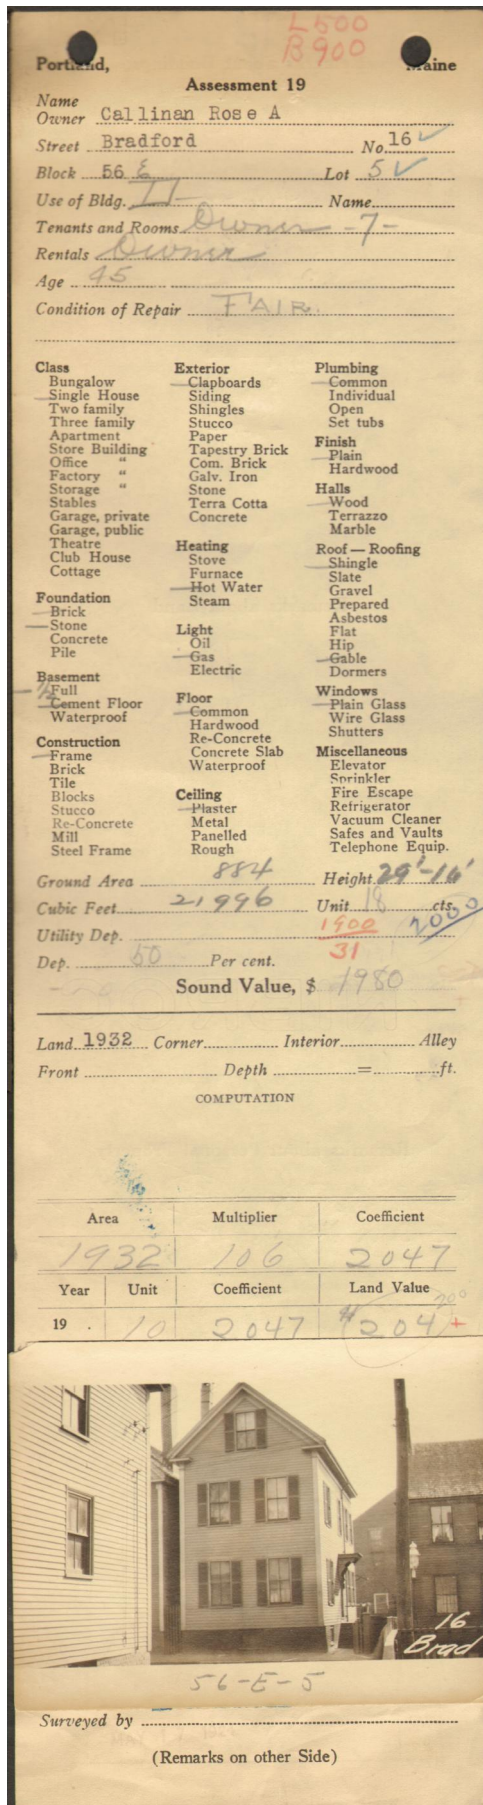 L500
B900
Portland, Maine
Assessment 19
Name
Owner Callinan Rose A
Street Bradford No. 16 ✓
Block 56 E Lot 5 ✓
Use of Bldg. Name
Tenants and Rooms Owner -7-
Rentals Owner
Age 45
Condition of Repair FAIR.
Class
Bungalow
Single House
Two family
Three family
Apartment
Store Building
Office "
Factory "
Storage "
Stables
Garage, private
Garage, public
Theatre
Club House
Cottage
Foundation
Brick
Stone
Concrete
Pile
Basement
½ Full
Cement Floor
Waterproof
Construction
Frame
Brick
Tile
Blocks
Stucco
Re-Concrete
Mill
Steel Frame
Exterior
Clapboards
Siding
Shingles
Stucco
Paper
Tapestry Brick
Com. Brick
Galv. Iron
Stone
Terra Cotta
Concrete
Heating
Stove
Furnace
Hot Water
Steam
Light
Oil
Gas
Electric
Floor
Common
Hardwood
Re-Concrete
Concrete Slab
Waterproof
Ceiling
Plaster
Metal
Panelled
Rough
Plumbing
Common
Individual
Open
Set tubs
Finish
Plain
Hardwood
Halls
Wood
Terrazzo
Marble
Roof — Roofing
Shingle
Slate
Gravel
Prepared
Asbestos
Flat
Hip
Gable
Dormers
Windows
Plain Glass
Wire Glass
Shutters
Miscellaneous
Elevator
Sprinkler
Fire Escape
Refrigerator
Vacuum Cleaner
Safes and Vaults
Telephone Equip.
Ground Area 884 Height 29'-16'
Cubic Feet 21996 Unit 18 cts.
Utility Dep. 1900 2000
31
Dep. 50 Per cent.
Sound Value, $ 1980
Land 1932 Corner Interior Alley
Front Depth = ft.
COMPUTATION
Area Multiplier Coefficient
1932 106 2047
Year Unit Coefficient Land Value
200
19 . 10 2047 $204 +
16
Brad
56-E-5
Surveyed by
(Remarks on other Side)